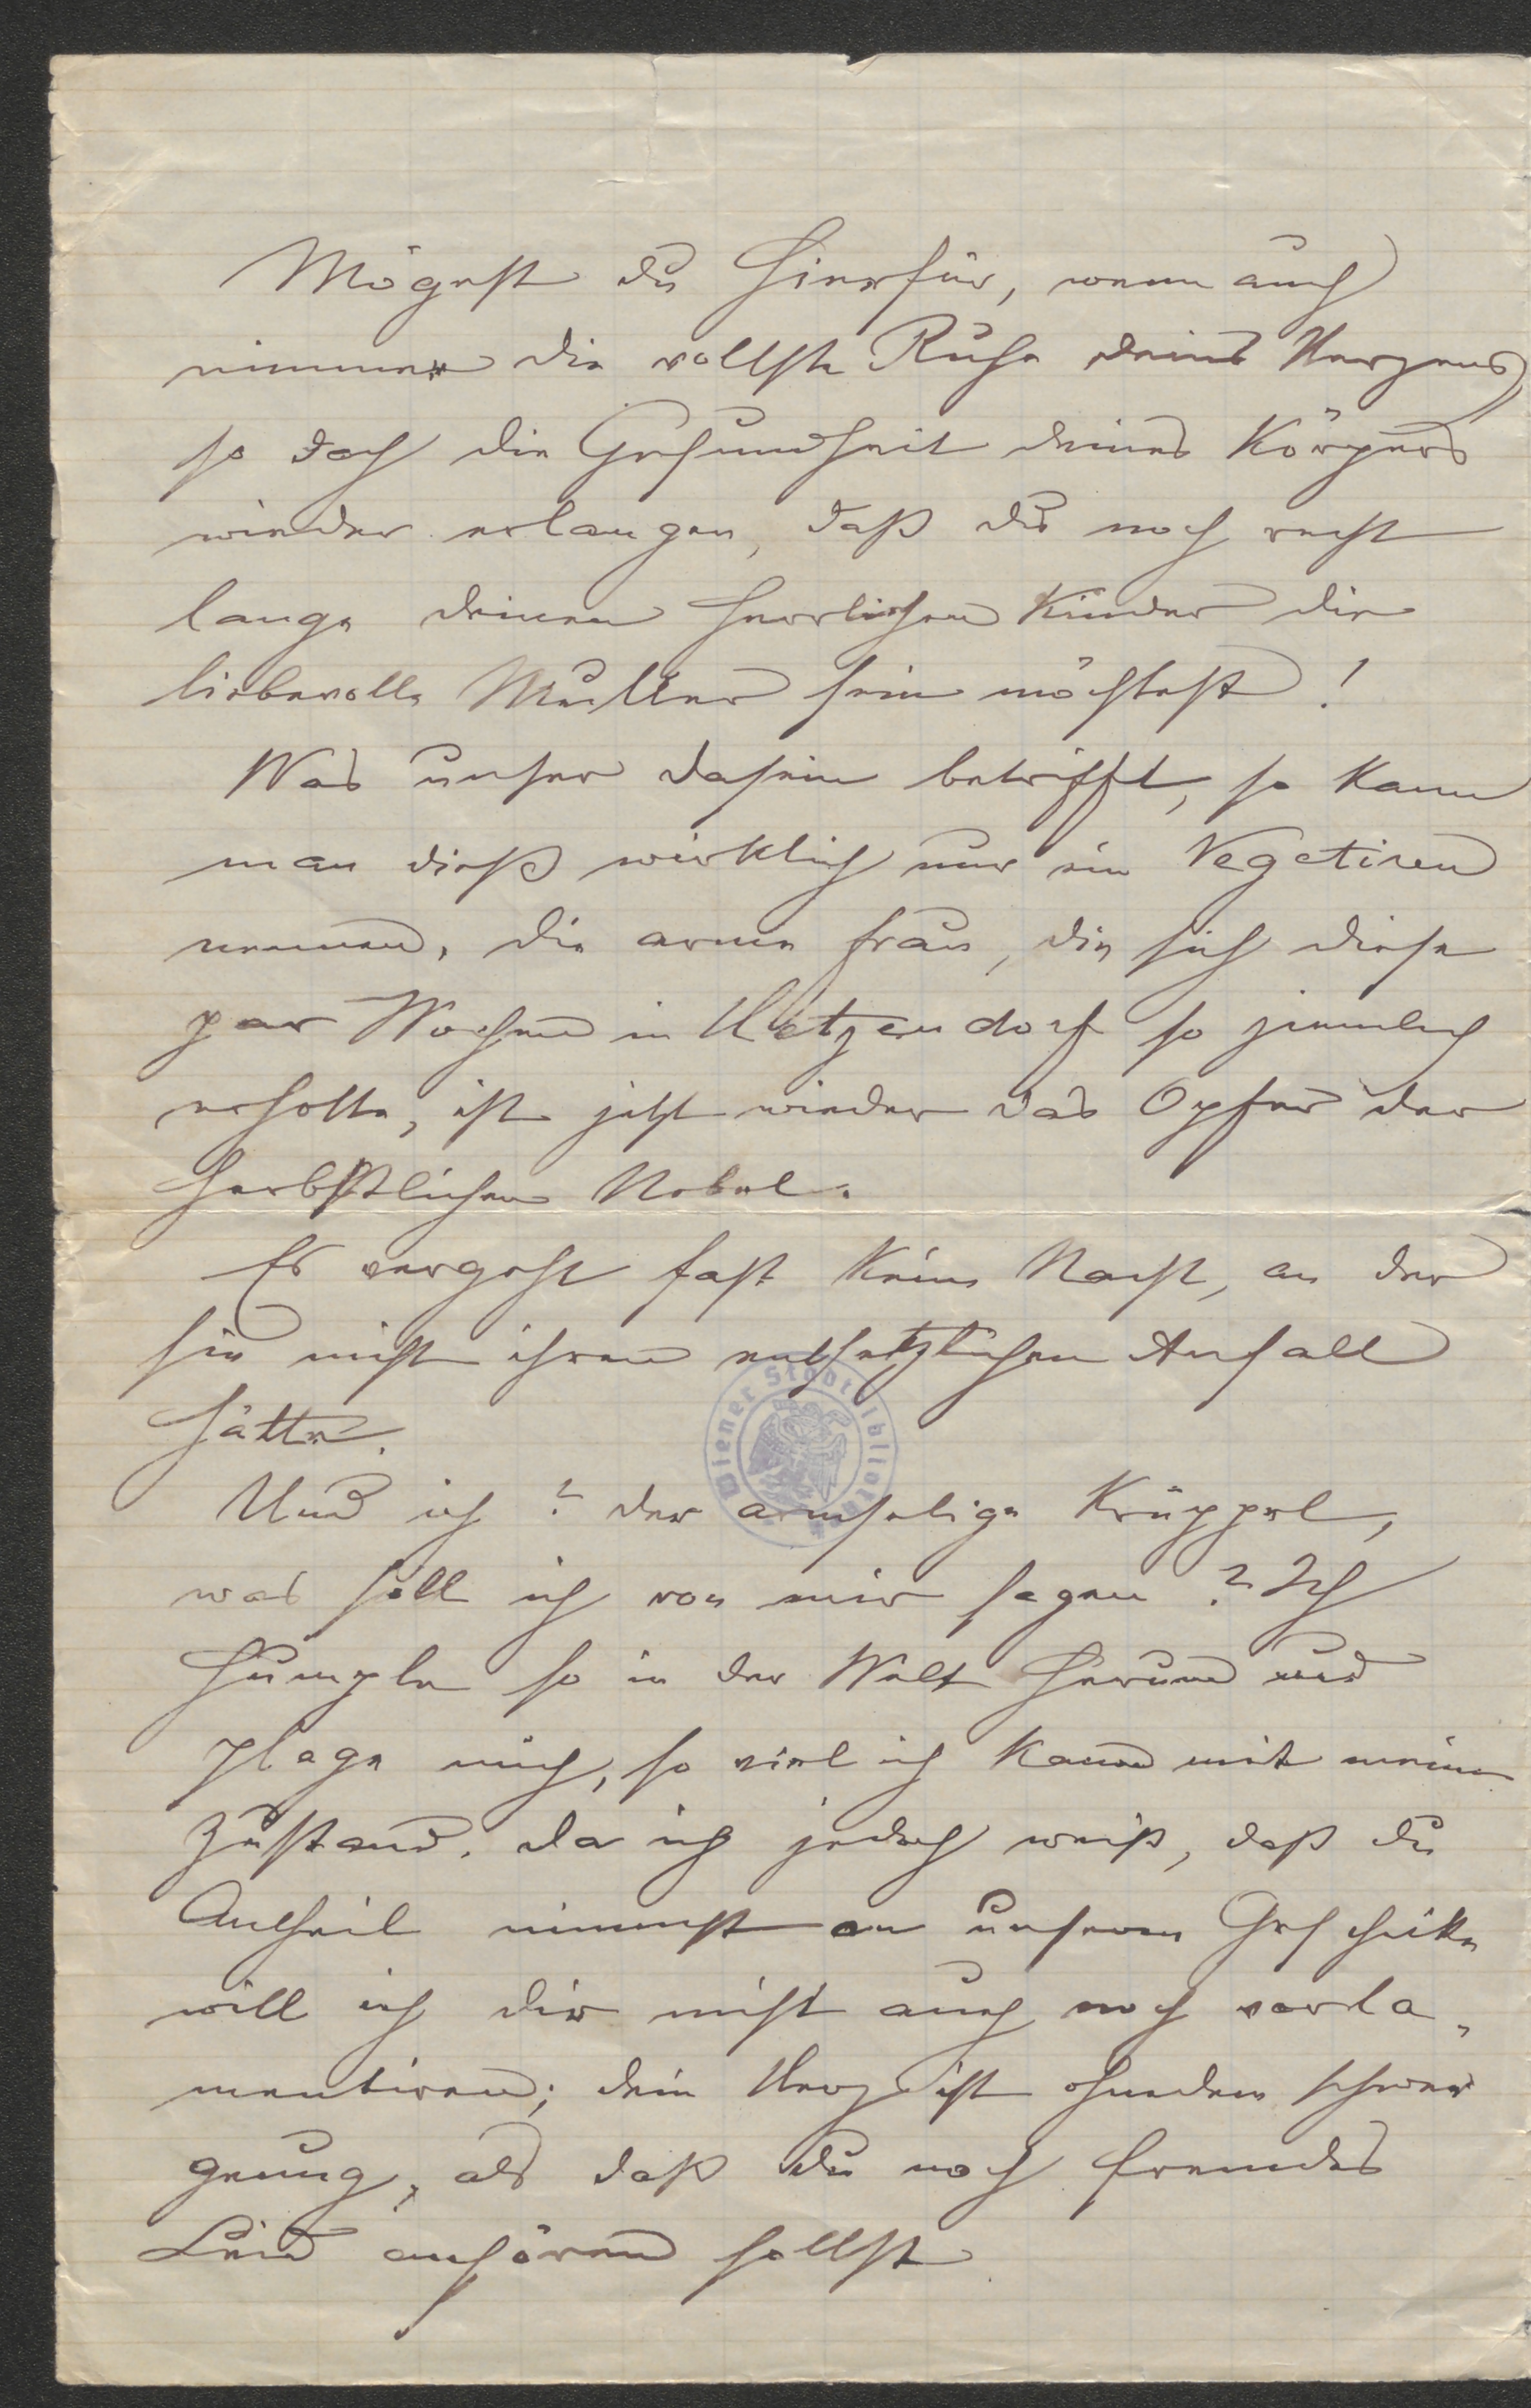 Mögest du hierfür, wenn auch
nimmer die vollste Ruhe deines Herzens,
so doch die Gesundheit deines Körpers
wieder erlangen, daß du noch recht
lange deinen herrlichen Kinder die
liebevolle Mutter sein möchtest!
Was unser dasein betrifft, so kann
man dieß wirklich nur ein Vegetiren
nennen, die arme frau, die sich diese
par Wochen in Hetzendorf so ziemlich
erholte, ist jetzt wieder das Opfer der
herbstlichen Nebel.
Es vergeht fast keine Nacht, an der
sie nicht ihren entsetzlichen Anfall
hätte.
Und ich? der armselige Krüppel,
was soll ich von mir sagen? Ich
humple so in der Welt herum und
plage mich, so viel ich kann mit meinem
Zustand. da ich jedoch weiß, daß du
Antheil nimmst an unserem Geschicke
will ich dir nicht auch noch vorla„
mentiren; dein Herz ist ohnedem schwer
genug, als daß du noch fremdes
Leid anhören sollst.
Wiener Stadtbibliothek